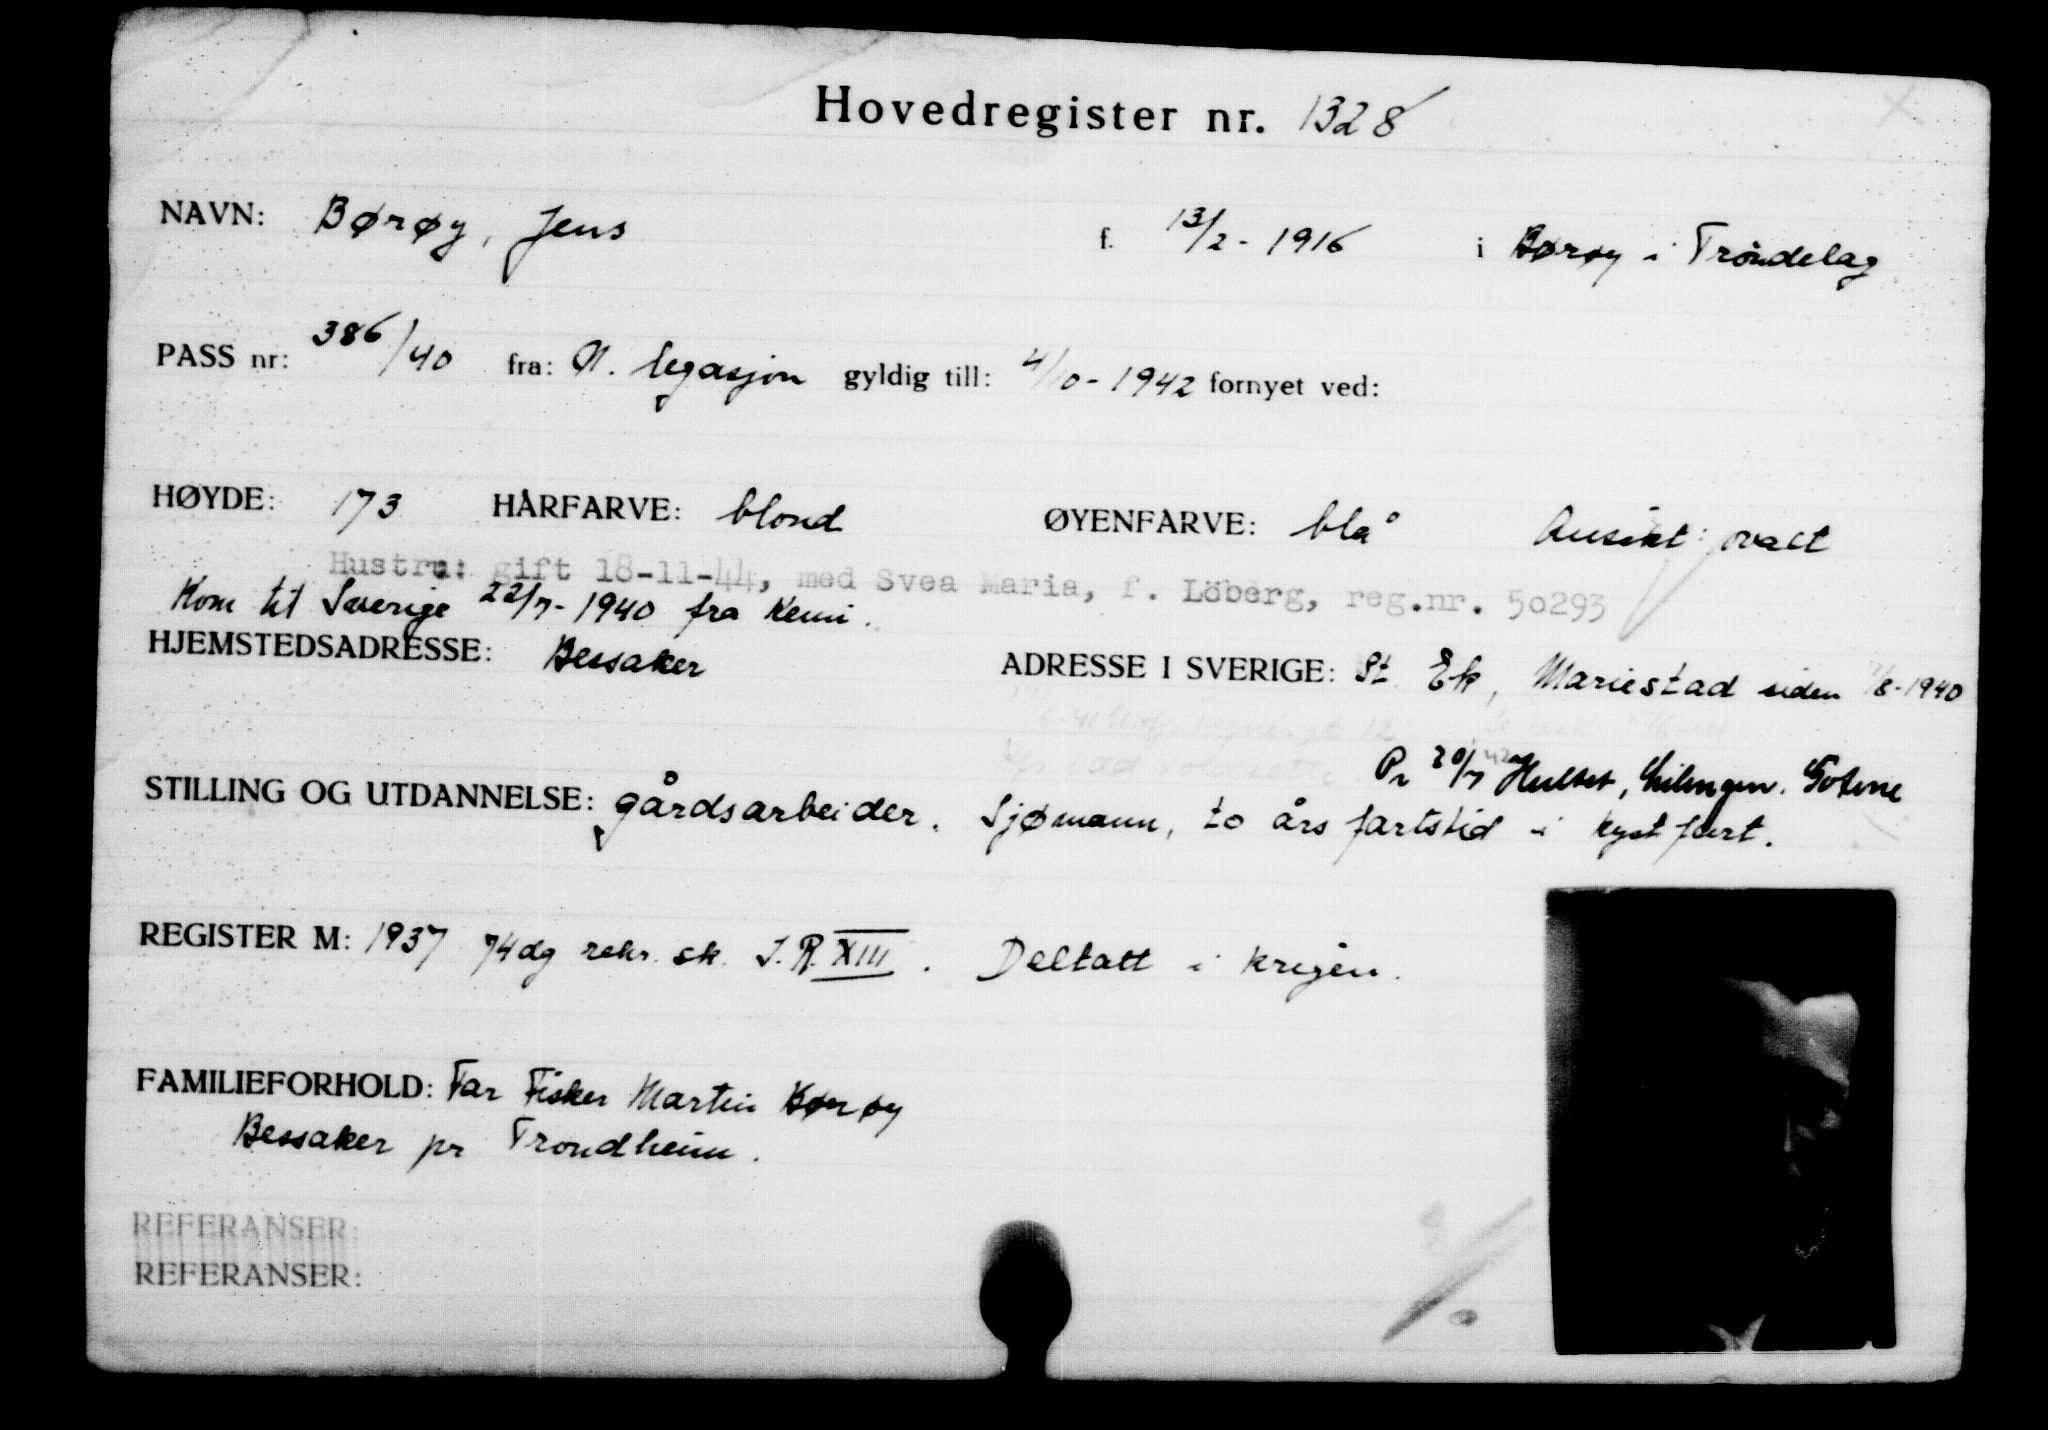 Hovedregister nr. 1328
NAVN: Børøy, Jens f. 13/2 - 1916 i Børøy i Trøndelag
PASS nr: 386/40 fra: N. legasjon gyldig till: 4/10 - 1942 fornyet ved:
HØYDE: 173 HÅRFARVE: blond ØYENFARVE: blå Ansikt: ovalt
Hustru: gift 18-11-44, med Svea Maria, f. Löberg, reg.nr. 50293
Kom til Sverige 22/7 - 1940 fra Kemi.
HJEMSTEDSADRESSE: Bessaker ADRESSE I SVERIGE: St. Ek, Mariestad siden 1/8 - 1940
Pr 20/7 42 Hultet,
STILLING OG UTDANNELSE: gårdsarbeider. Sjømann, to års fartstid i kystfart.
REGISTER M: 1937 74 dg rekr. sk. I.R. XIII. Deltatt i krigen.
FAMILIEFORHOLD: Far Fisker Martin Børøy
Bessaker pr Trondheim.
REFERANSER:
REFERANSER: